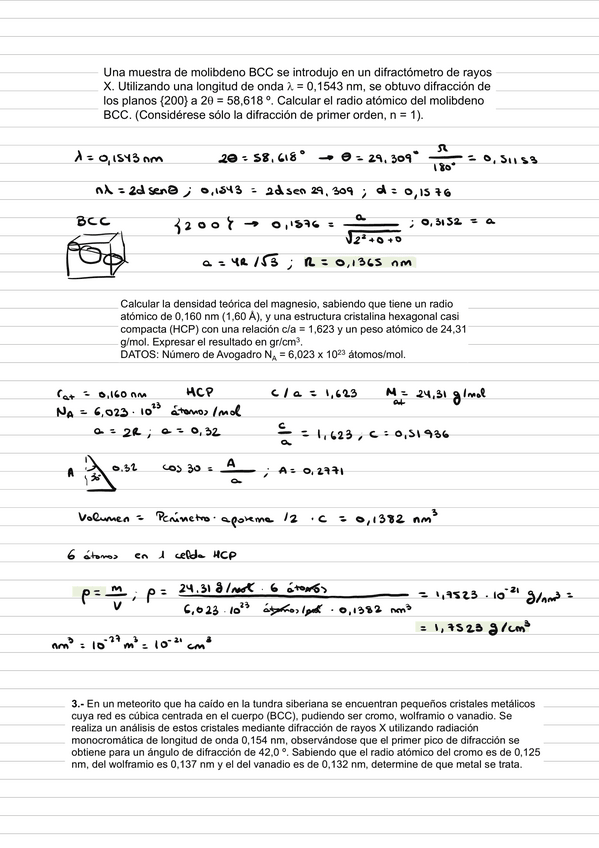 Una muestra de molibdeno BCC se introdujo en un difractómetro de rayos
X. Utilizando una longitud de onda λ = 0,1543 nm, se obtuvo difracción de
los planos {200} a 2θ = 58,618 º. Calcular el radio atómico del molibdeno
BCC. (Considérese sólo la difracción de primer orden, n = 1).
λ = 0,1543 nm 2θ = 58,618° → θ = 29,309° π/180° = 0,51153
nλ = 2d senθ ; 0,1543 = 2d sen 29,309 ; d = 0,1576
BCC {200} → 0,1576 = a/√(2²+0+0) ; 0,3152 = a
a = 4R/√3 ; R = 0,1365 nm
Calcular la densidad teórica del magnesio, sabiendo que tiene un radio
atómico de 0,160 nm (1,60 Å), y una estructura cristalina hexagonal casi
compacta (HCP) con una relación c/a = 1,623 y un peso atómico de 24,31
g/mol. Expresar el resultado en gr/cm³.
DATOS: Número de Avogadro N_A = 6,023 x 10²³ átomos/mol.
r_at = 0,160 nm HCP c/a = 1,623 M_at = 24,31 g/mol
N_A = 6,023 · 10²³ átomos/mol
a = 2R ; a = 0,32 c/a = 1,623 , c = 0,51936
A 30 0.32 cos 30 = A/a ; A = 0,2771
Volumen = Perímetro · apotema /2 · c = 0,1382 nm³
6 átomos en 1 celda HCP
ρ = m/V ; ρ = 24,31 g/mol · 6 átomos / 6,023 · 10²³ átomos/mol · 0,1382 nm³ = 1,7523 · 10⁻²¹ g/nm³ =
= 1,7523 g/cm³
nm³ = 10⁻²⁷ m³ = 10⁻²¹ cm³
3.- En un meteorito que ha caído en la tundra siberiana se encuentran pequeños cristales metálicos
cuya red es cúbica centrada en el cuerpo (BCC), pudiendo ser cromo, wolframio o vanadio. Se
realiza un análisis de estos cristales mediante difracción de rayos X utilizando radiación
monocromática de longitud de onda 0,154 nm, observándose que el primer pico de difracción se
obtiene para un ángulo de difracción de 42,0 º. Sabiendo que el radio atómico del cromo es de 0,125
nm, del wolframio es 0,137 nm y el del vanadio es de 0,132 nm, determine de que metal se trata.